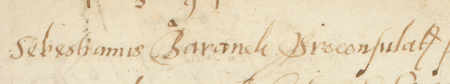 Sebestianus Baranek Proconsulatus